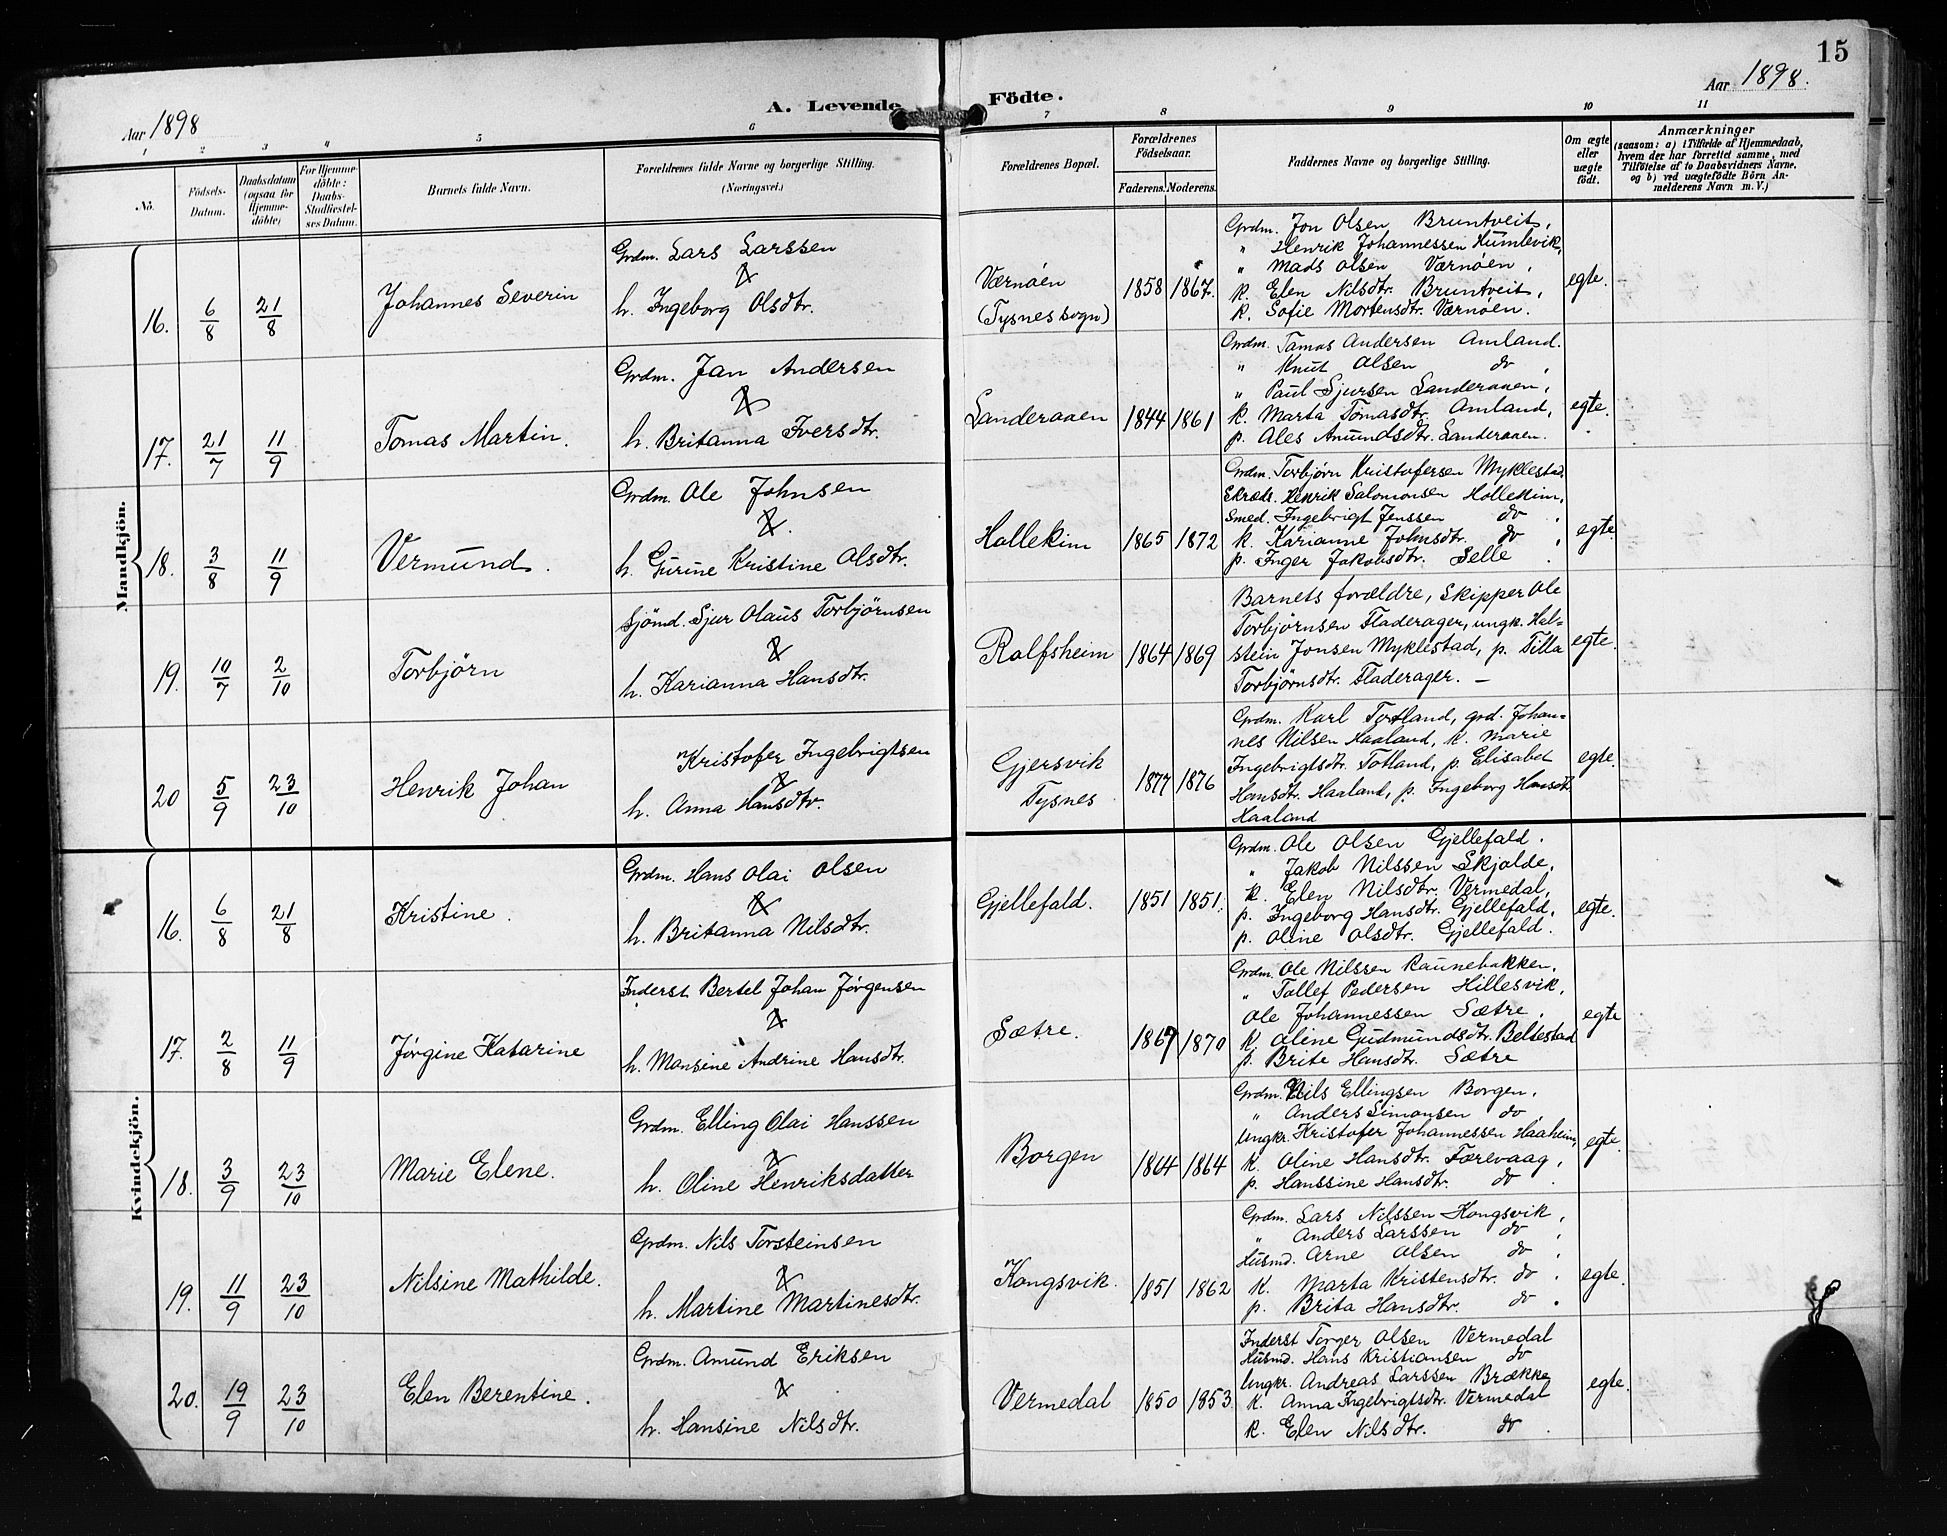 15
Aar 1898
A. Levende Födte.
Aar 1898.
1 2 3 4 5 6 7 8 9 10 11
No.
Födsels-
Datum.
Daabsdatum
(ogsaa for
Hjemme-
döbte)
For Hjemme-
döbte:
Daabs-
Stadfæstel-
ses Datum.
Barnets fulde Navn.
Forældrenes fulde Navne og borgerlige Stilling.
(Næringsvei.)
Forældrenes Bopæl.
Forældrenes
Födselsaar.
Faderens. Moderens.
Faddernes Navne og borgerlige Stilling.
Om ægte
eller
uægte
födt.
Anmærkninger
(saasom: a) i Tilfælde af Hjemmedaab,
hvem der har forrettet samme, med
Tilföielse af to Daabsvidners Navne.
og b) ved uægtefödte Börn An-
melderens Navn m. V.)
Mandkjön.
16. 6/8 21/8 Johannes Severin
Grdm. Lars Larssen
h. Ingeborg Olsdtr.
Værnøen
(Tysnes sogn)
1858 1867.
Grdm. Jon Olsen Bruntveit,
" Henrik Johannessen Humlevik,
" Mads Olsen Værnøen,
k. Elen Nilsdtr. Bruntveit,
k. Sofie Mortensdtr. Værnøen.
egte.
17. 21/7 11/9 Tomas Martin.
Grdm. Jan Andersen
h. Britanna Iversdtr.
Sanderaaen 1844 1861
Grdm. Tomas Andersen Amland.
" Knut Olsen do,
" Paul Sjursen Sanderaaen,
k. Marta Tomasdtr. Amland,
p. Ales Amundsdtr. Sanderaaen.
egte.
18. 3/8 11/9 Vermund.
Grdm. Ole Johnsen
h. Gurine Kristine Olsdtr.
Hollekim 1865 1872
Grdm. Torbjørn Kristofersen Myklestad
Skræds. Henrik Salomonsen Hollekim,
Smed. Ingebrigt Jenssen do,
k. Karianne Johnsdtr. do,
p. Inger Jakobsdtr. Selle.
egte.
19. 10/7 2/10 Torbjörn
Sjömd. Sjur Olaus Torbjörnsen
h. Karianna Hansdtr.
Rolfsheim 1864 1869
Barnets forældre, Skipper Ole
Torbjørnsen Fladerager, ungk. Hal=
stein Jonsen Myklestad, p. Tilla
Torbjørnsdtr. Fladerager. —
egte.
20 5/9 23/10 Henrik Johan
Kristofer Ingebrigtsen
h. Anna Hansdtr.
Gjersvik
Tysnes
1877 1876
Grdm. Karl Totland, grd. Johan=
nes Nilsen Haaland, k. Marie
Ingebrigtsdtr. Totland, p. Elisabet
Hansdtr. Haaland, p. Ingeborg Hansdtr.
Haaland
egte.
Kvindekjön.
16. 6/8 21/8 Kristine.
Grdm. Hans Olai Olsen
h. Britanna Nilsdtr.
Gjellefald. 1851 1851.
Grdm. Ole Olsen Gjellefald.
" Jakob Nilssen Skjolde,
k. Elen Nilsdtr. Vermedal,
p. Ingeborg Hansdtr. Gjellefald,
p. Oline Olsdtr. Gjellefald.
egte.
17. 2/8 11/9 Jørgine Katarine
Inderst Bertel Johan Jørgensen
h. Mansine Andrine Hansdtr.
Sætre. 1867 1870
Grdm. Ole Nilssen Raunebakken,
" Tollef Pedersen Hillesvik,
Ole Johannessen Sætre,
k. Oline Gudmundsdtr. Beltestad
p. Brite Hansdtr. Sætre
egte
18. 3/9 23/10 Marie Elene.
Grdm. Elling Olai Hanssen
h. Oline Henriksdatter
Borgen 1864 1864
Grdm. Nils Ellingsen Borgen,
" Anders Simonsen do,
Ungkr. Kristofer Johannessen Haaheim,
k. Oline Hansdtr. Færevaag,
p. Hanssine Hansdtr. do.
egte.
19. 11/9 23/10 Nilsine Mathilde.
Grdm. Nils Torsteinsen
h. Martine Martinesdtr.
Kongsvik. 1851 1862
Grdm. Lars Nilssen Kongsvik,
" Anders Larssen do,
Husmd. Arne Olsen do,
k. Marta Kristensdtr. do.
p. Brita Hansdtr. do.
egte.
20. 19/9 23/10 Elen Berentine.
Grdm. Amund Eriksen
h. Hansine Nilsdtr.
Vermedal 1850 1853.
Inderst Torger Olsen Vermedal
Husmd. Hans Kristiansen do
Ungkr. Andreas Larssen Brække
k. Anna Ingebrigtsdtr. Vermedal
k. Elen Nilsdtr. do.
egte.